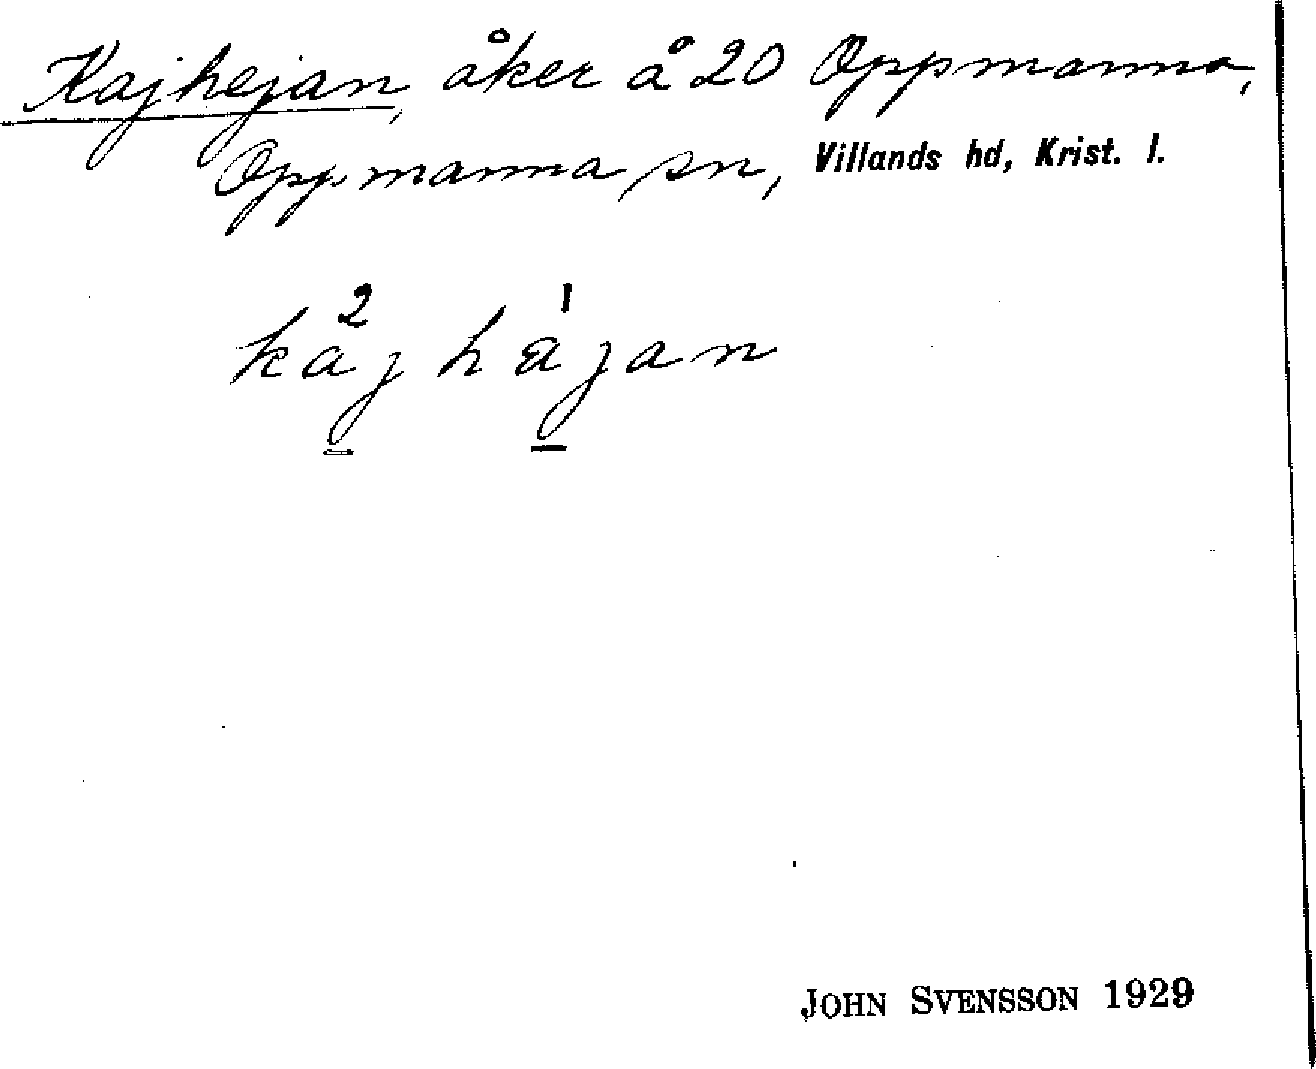 Kajhejan, åker å 20 Oppmanna,
Oppmanna sn, Villands hd, Krist. l.
2 1
kajhajan
JOHN SVENSSON 1929